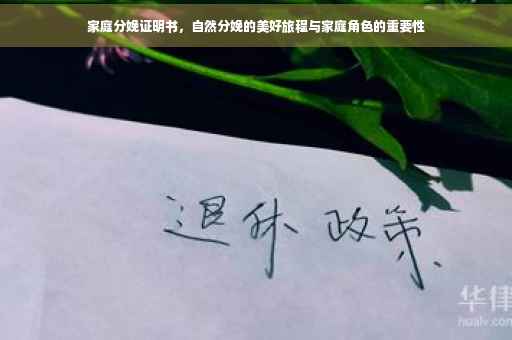 家庭分娩证明书，自然分娩的美好旅程与家庭角色的重要性
退休 政策
华律
hualv.com